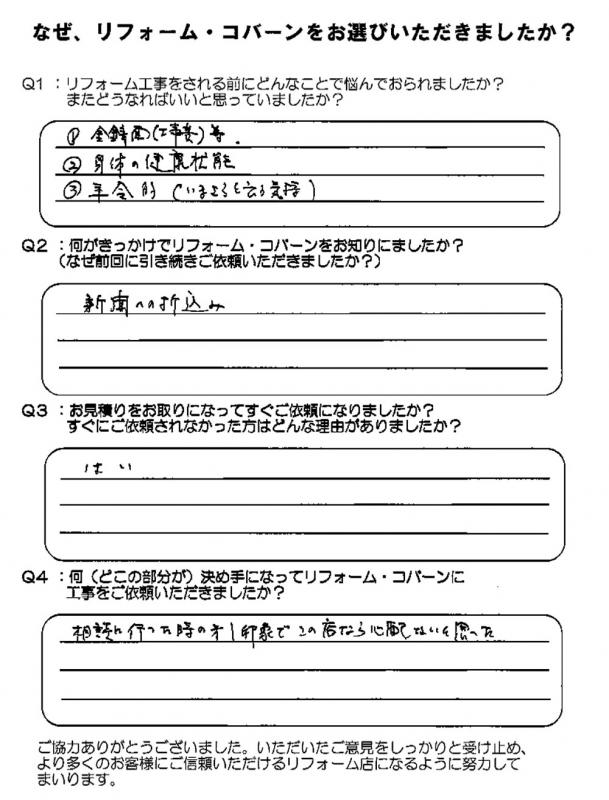 なぜ、リフォーム・コバーンをお選びいただきましたか？
Q1 ：リフォーム工事をされる前にどんなことで悩んでおられましたか？
またどうなればいいと思っていましたか？
① 金銭面（工事費）等．
② 身体の健康状態
③ 年令的
Q2 ：何がきっかけでリフォーム・コバーンをお知りにましたか？
（なぜ前回に引き続きご依頼いただきましたか？）
新聞への折込み
Q3 ：お見積りをお取りになってすぐご依頼になりましたか？
すぐにご依頼されなかった方はどんな理由がありましたか？
はい
Q4 ：何（どこの部分が）決め手になってリフォーム・コバーンに
工事をご依頼いただきましたか？
相談に行った時の才一印象でこの店なら心配ないと思った
ご協力ありがとうございました。いただいたご意見をしっかりと受け止め、
より多くのお客様にご信頼いただけるリフォーム店になるように努力して
まいります。